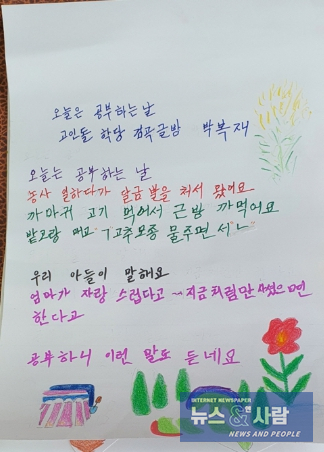 오늘은 공부하는 날
고인돌 학당 점곡글밤 박복재
오늘는 공부하는 날
농사 일하다가 달금불을 쳐서 왔어요
까마귀 고기 먹어서 근방 까먹어요
밭고랑 매고 ㄱ고추모종 물주면서 ㄴ
우리 아들이 말해요
엄마가 자랑 스럽다고 … 지금처럼만 사셨으면
한다고
공부하니 이런 말도 듣네요
INTERNET NEWSPAPER
뉴스&사람
NEWS AND PEOPLE